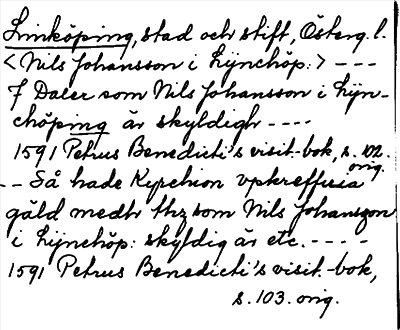 Linköping, stad och stift, Österg. l.
< Nils Johansson i Lijnchöp: > - - -
7 Daler som Nils Johansson i Lijn-
chöping är skyldigh - - - -
1591 Petrus Benedicti's visit.-bok, s. 102.
orig.
- - Så hade Kyrchion vpkreffuia
gäld medh thz som Nils Johanszon
i Lijnchöp: skyldig är etc. - - - -
1591 Petrus Benedicti's visit.-bok,
s. 103. orig.